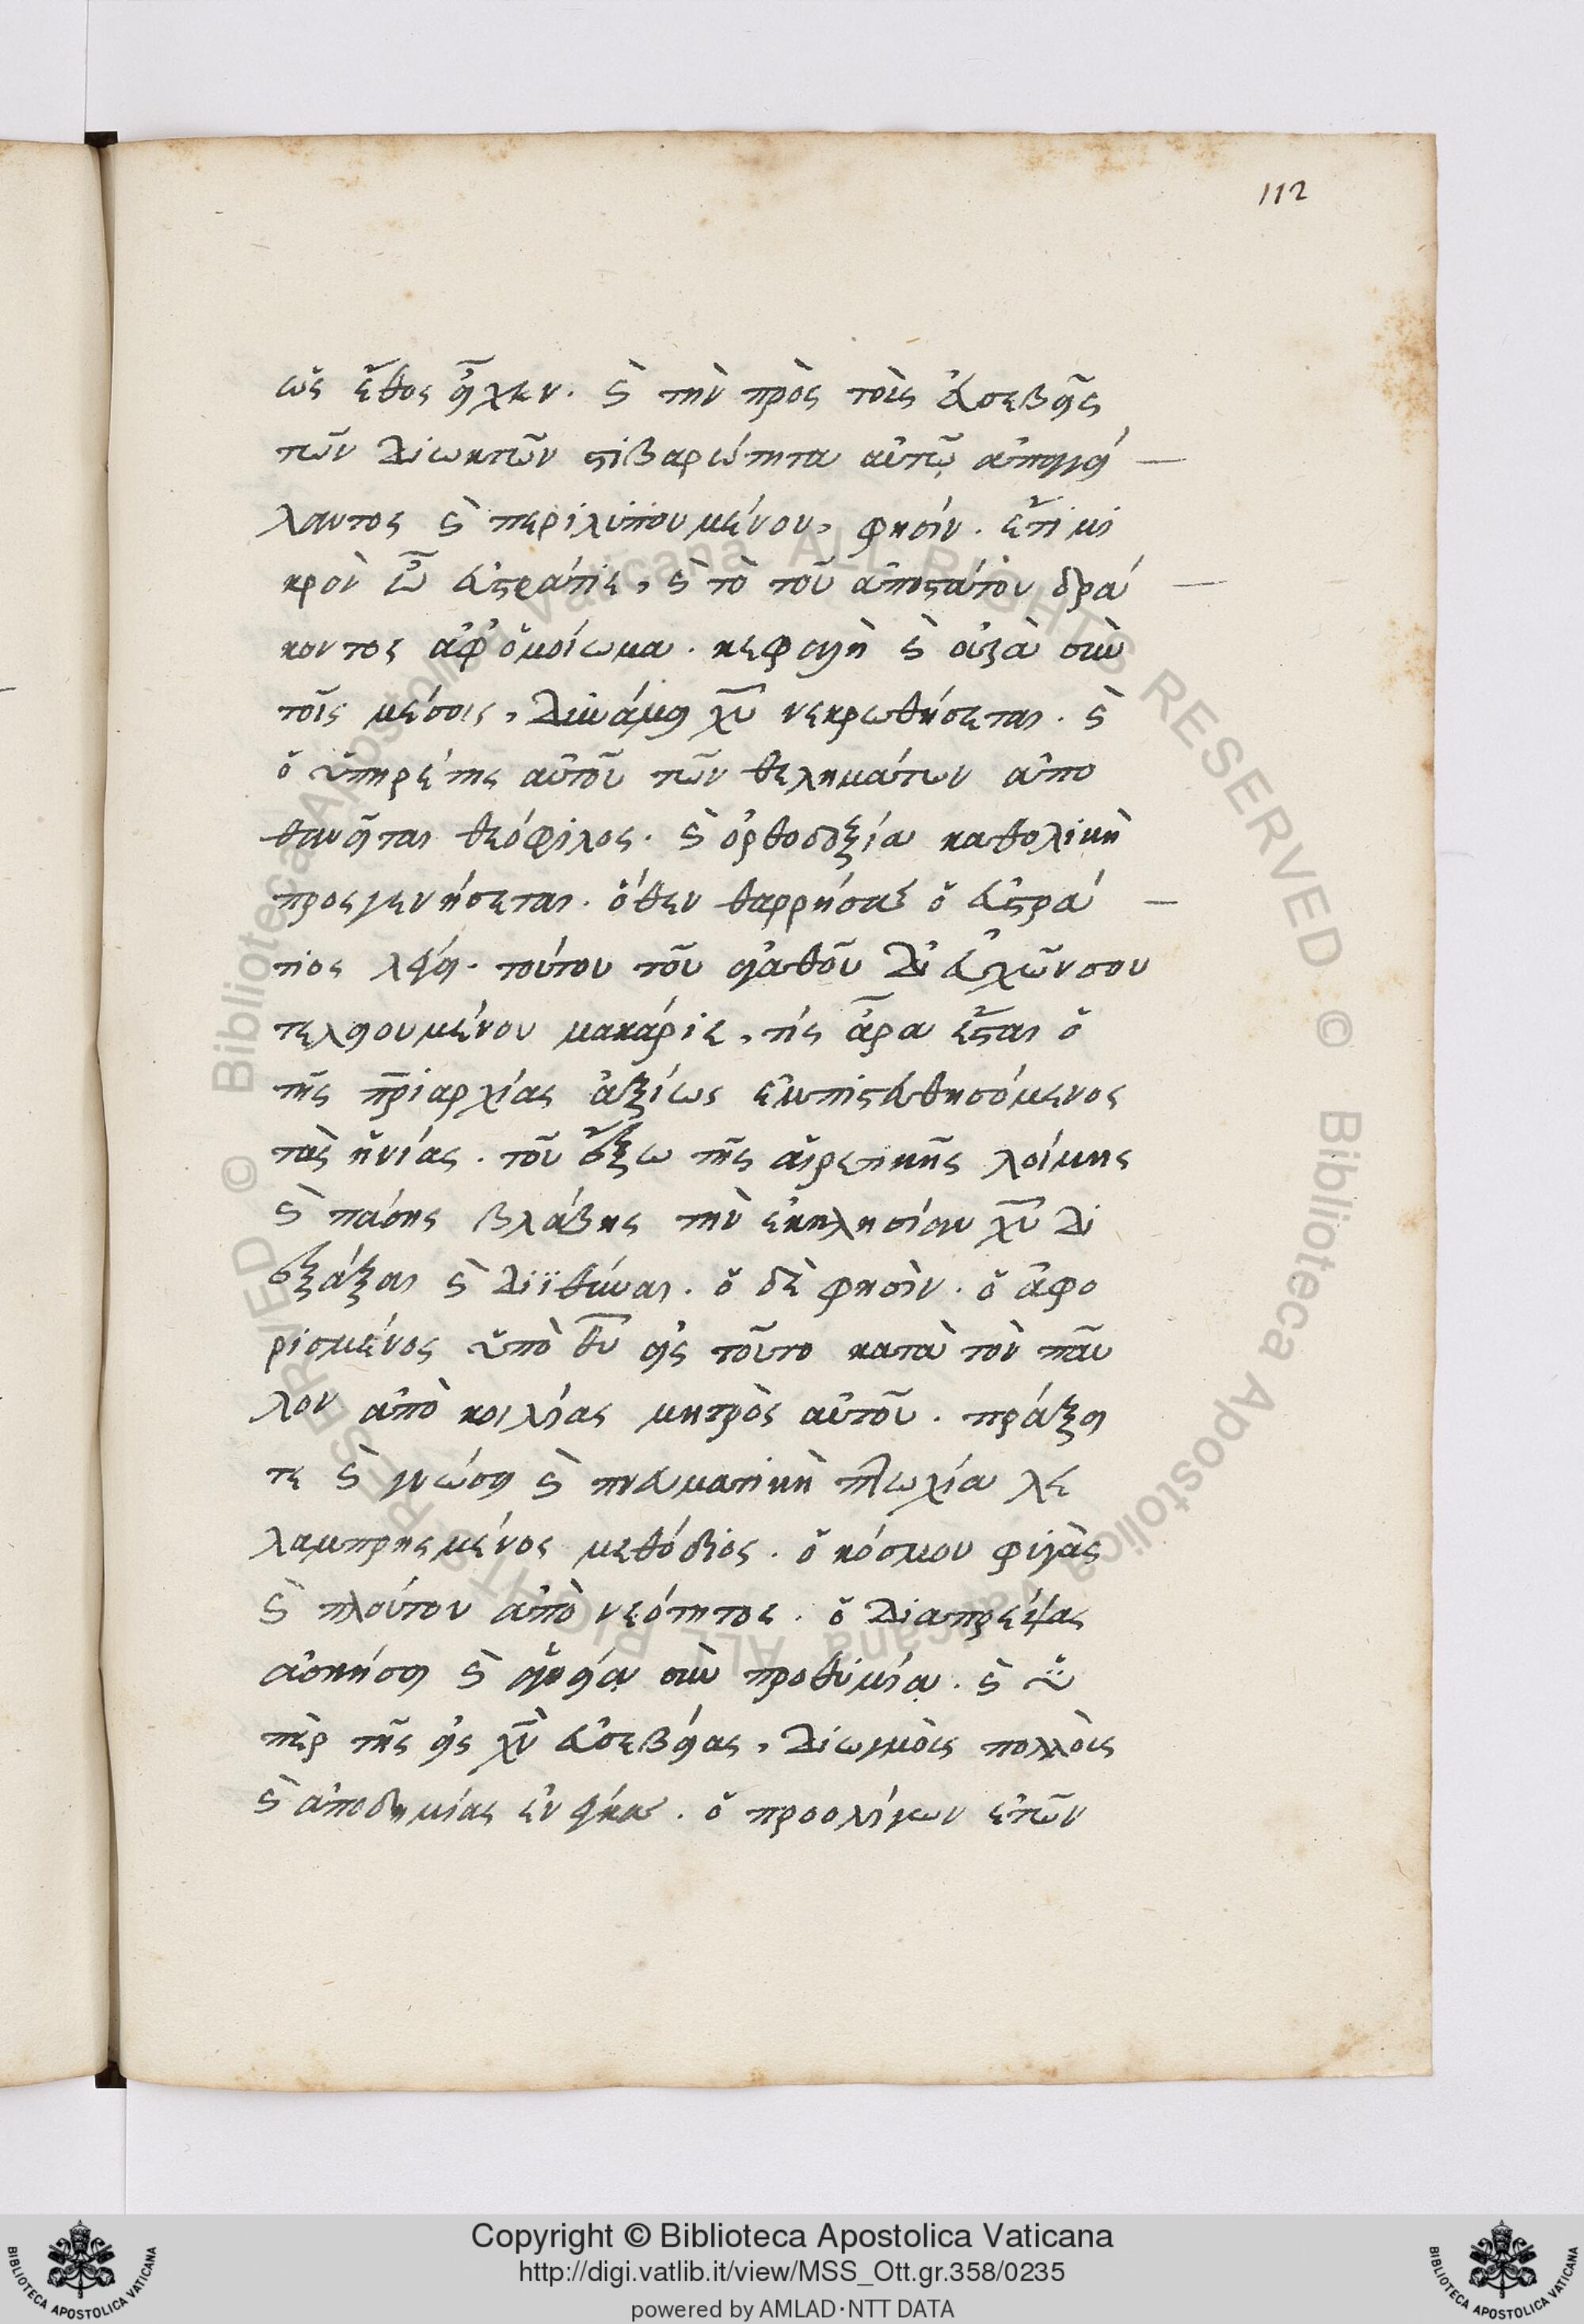 112
ὡς ἔθος εἶχεν. καὶ τὴν πρὸς τοὺς εὐσεβεῖς
τῶν διωκτῶν στιβαρώτητα αὐτῷ ἀπαγγεί
λαντος καὶ περιλυπουμένου, φησίν. ἔτι μι
κρὸν ὦ εὐστράτιε, καὶ τὸ τοῦ ἀποστάτου δρά
κοντος ἀφομοίωμα. κεφαλὴ καὶ οὐρὰ σὺν
τοῖς μέσοις, δυνάμει χυ νεκρωθήσεται. καὶ
ὁ ὑπηρέτης αὐτοῦ τῶν θελημάτων ἀπο
θανεῖται θεόφιλος. καὶ ὀρθοδοξία καθολικὴ
προσγενήσεται. ὅθεν θαρρήσας ὁ εὐστρά
τιος λέγει. τούτου τοῦ ἀγαθοῦ δι εὐχῶν σου
τελειουμένου μακάριε, τίς ἄρα ἔσται ὁ
τῆς πριαρχίας ἀξίως ἐμπιστευθησόμενος
τὰς ἡνίας. τοῦ ἔξω τῆς αἱρετικῆς λοίμης
καὶ πάσης βλάβης τὴν ἐκκλησίαν χυ δι
εξάξαι καὶ διϊθύναι. ὁ δὲ φησὶν. ὁ ἀφο
ρισμένος ὑπὸ θυ εἰς τοῦτο κατὰ τὸν παῦ
λον ἀπὸ κοιλίας μητρὸς αὐτοῦ. πράξει
τε καὶ γνώσει καὶ πνευματικὴ πτωχία λε
λαμπρησμένος μεθόδιος. ὁ κόσμου φυγὰς
καὶ πλούτου ἀπὸ νεότητος. ὁ διαπρέψας
ἀσκήσει καὶ ἁγνείᾳ σὺν προθυμίᾳ. καὶ ὑ
πὲρ τῆς εἰς χν εὐσεβείας, διωγμοὺς πολλοὺς
καὶ ἀποδημίας ἐνέγκας. ὁ προολίγων ἐτῶν
Copyright © Biblioteca Apostolica Vaticana
http://digi.vatlib.it/view/MSS_Ott.gr.358/0235
powered by AMLAD·NTT DATA